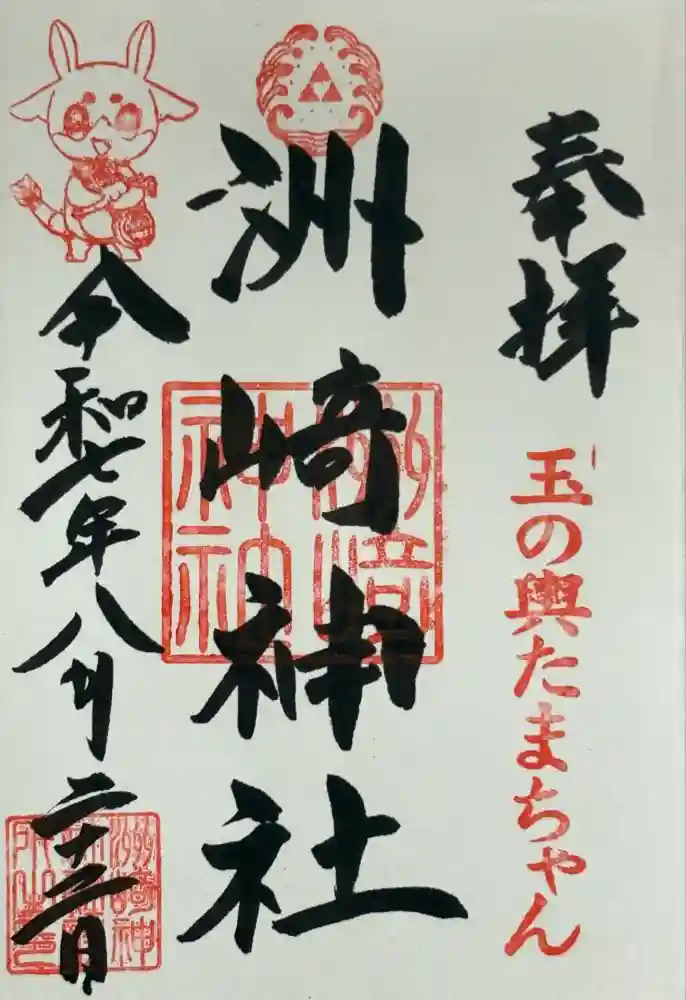 奉拝
玉の輿たまちゃん
洲崎神社
洲崎
神社
令和七年八月二十三日